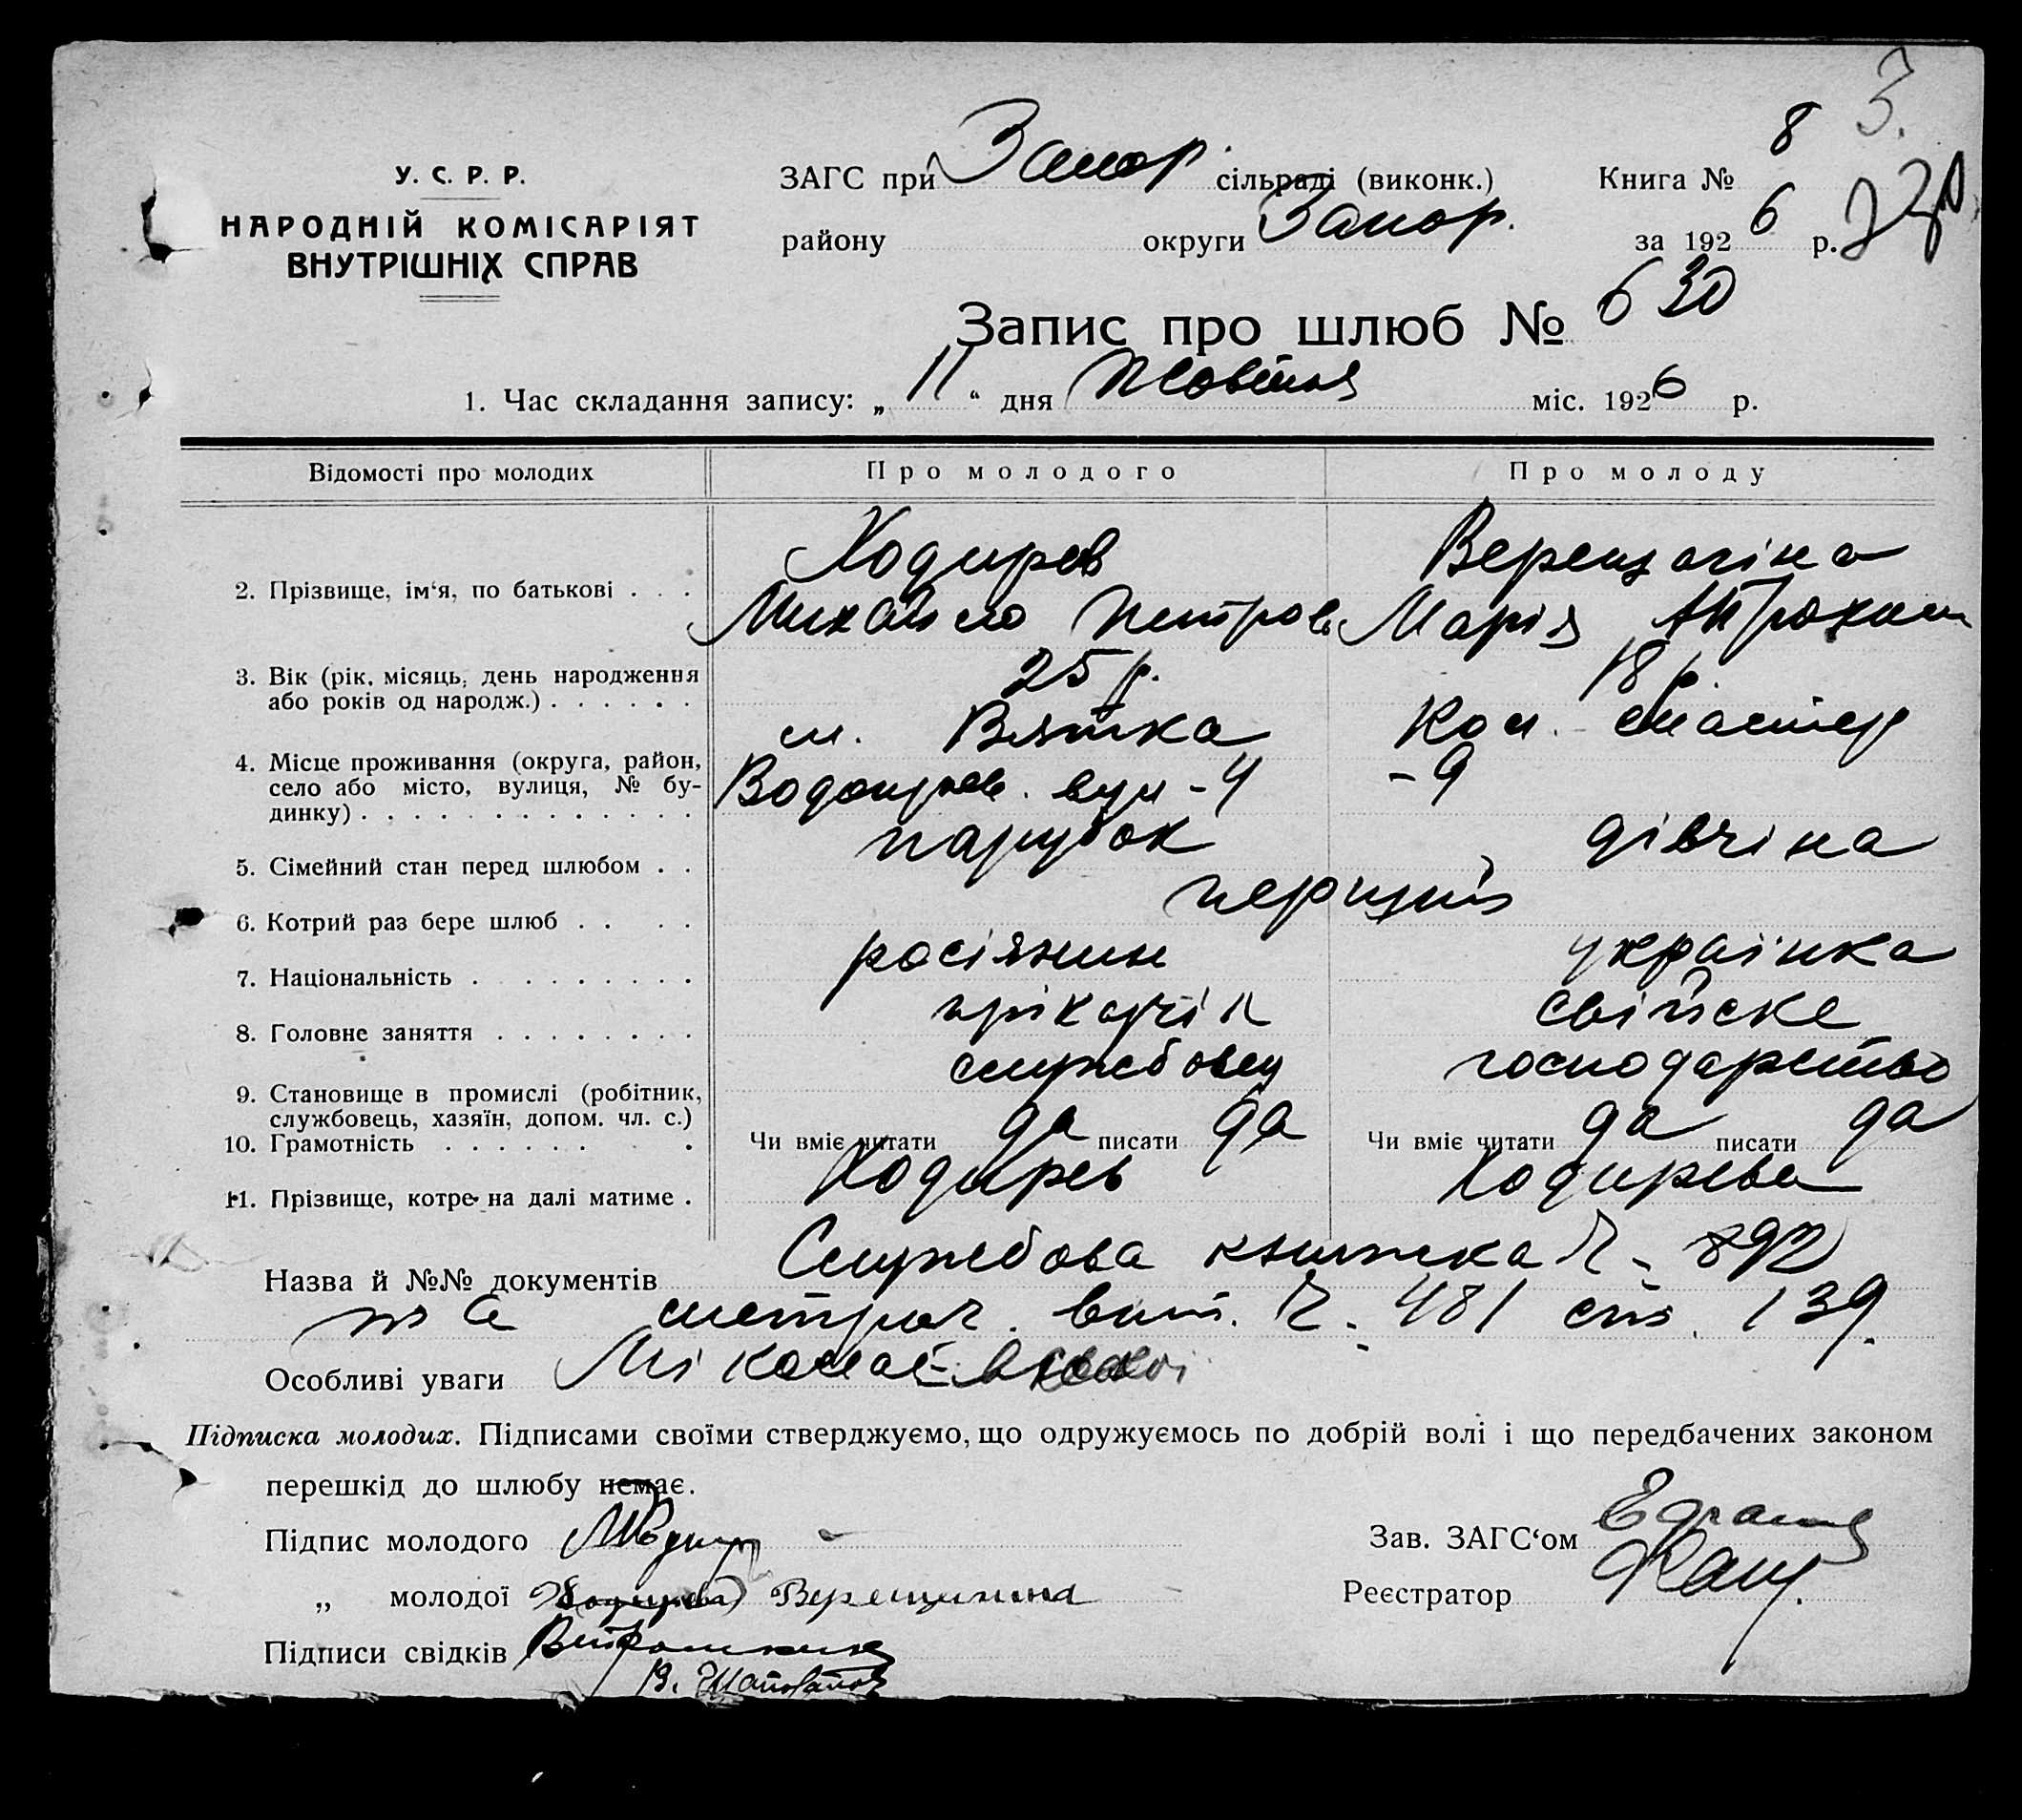 3.
У. С. Р. Р.
НАРОДНІЙ КОМІСАРІЯТ
ВНУТРІШНІХ СПРАВ
ЗАГС при Запор. сільраді (виконк.) Книга № 8
району округи Запор. за 1926 р.
Запис про шлюб № 630
1. Час складання запису: „11“ дня Жовтня міс. 1926 р.
Відомості про молодих Про молодого Про молоду
2. Прізвище, ім‘я, по батькові . . . Ходирев Верещагіна
Михайло Петров Марія
3. Вік (рік, місяць, день народження 25 р. 18 р.
або років од народж.) . . . . . .
4. Місце проживання (округа, район, м. Вятка Кол.
село або місто, вулиця, № бу- вул - 4 - 9
динку) . . . . . . . . . . . . .
5. Сімейний стан перед шлюбом . . парубок дівчіна
6. Котрий раз бере шлюб . . . . перший
7. Національність . . . . . . . . . росіянин українка
8. Головне заняття . . . . . . . . свійске
9. Становище в промислі (робітник, службовец господарство
службовець, хазяїн, допом. чл. с.)
10. Грамотність . . . . . . . Чи вміє читати да писати да Чи вміє читати да писати да
11. Прізвище, котре на далі матиме . Ходирев Ходирева
Назва й №№ документів Службова книжка Ч - 892
та метрич. вит. Ч. 481 стр. 139.
Особливі уваги
Підписка молодих. Підписами своїми стверджуємо, що одружуємось по добрій волі і що передбачених законом
перешкід до шлюбу немає.
Підпис молодого Зав. ЗАГС‘ом
„ молодої Реєстратор
Підписи свідків